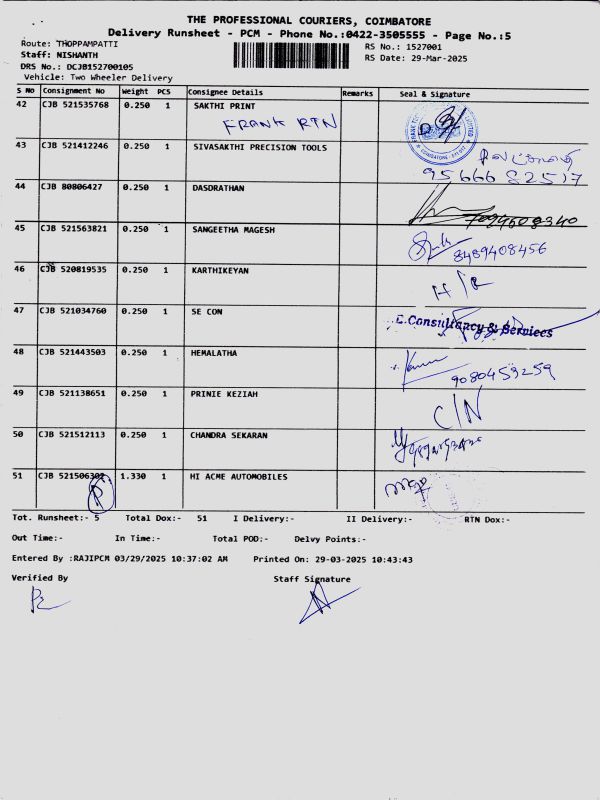 THE PROFESSIONAL COURIERS, COIMBATORE
Delivery Runsheet - PCM - Phone No.:0422-3505555 - Page No.:5
Route: THOPPAMPATTI
RS No.: 1527001
Staff: NISHANTH
RS Date: 29-Mar-2025
DRS No.: DCJB152700105
Vehicle: Two Wheeler Delivery
S No Consignment No Weight PCS Consignee Details Remarks Seal & Signature
42 CJB 521535768 0.250 1 SAKTHI PRINT
FRANK RTN
43 CJB 521412246 0.250 1 SIVASAKTHI PRECISION TOOLS
95666 82517
44 CJB 80806427 0.250 1 DASDRATHAN
7094608340
45 CJB 521563821 0.250 1 SANGEETHA MAGESH
8489408456
46 CJB 520819535 0.250 1 KARTHIKEYAN
H/R
47 CJB 521034760 0.250 1 SE CON
E.Consultancy & Services
48 CJB 521443503 0.250 1 HEMALATHA
9080459259
49 CJB 521138651 0.250 1 PRINIE KEZIAH
C/N
50 CJB 521512113 0.250 1 CHANDRA SEKARAN
51 1.330 1 HI ACME AUTOMOBILES
Tot. Runsheet:- 5 Total Dox:- 51 I Delivery:- II Delivery:- RTN Dox:-
Out Time:- In Time:- Total POD:- Delvy Points:-
Entered By :RAJIPCM 03/29/2025 10:37:02 AM Printed On: 29-03-2025 10:43:43
Verified By Staff Signature